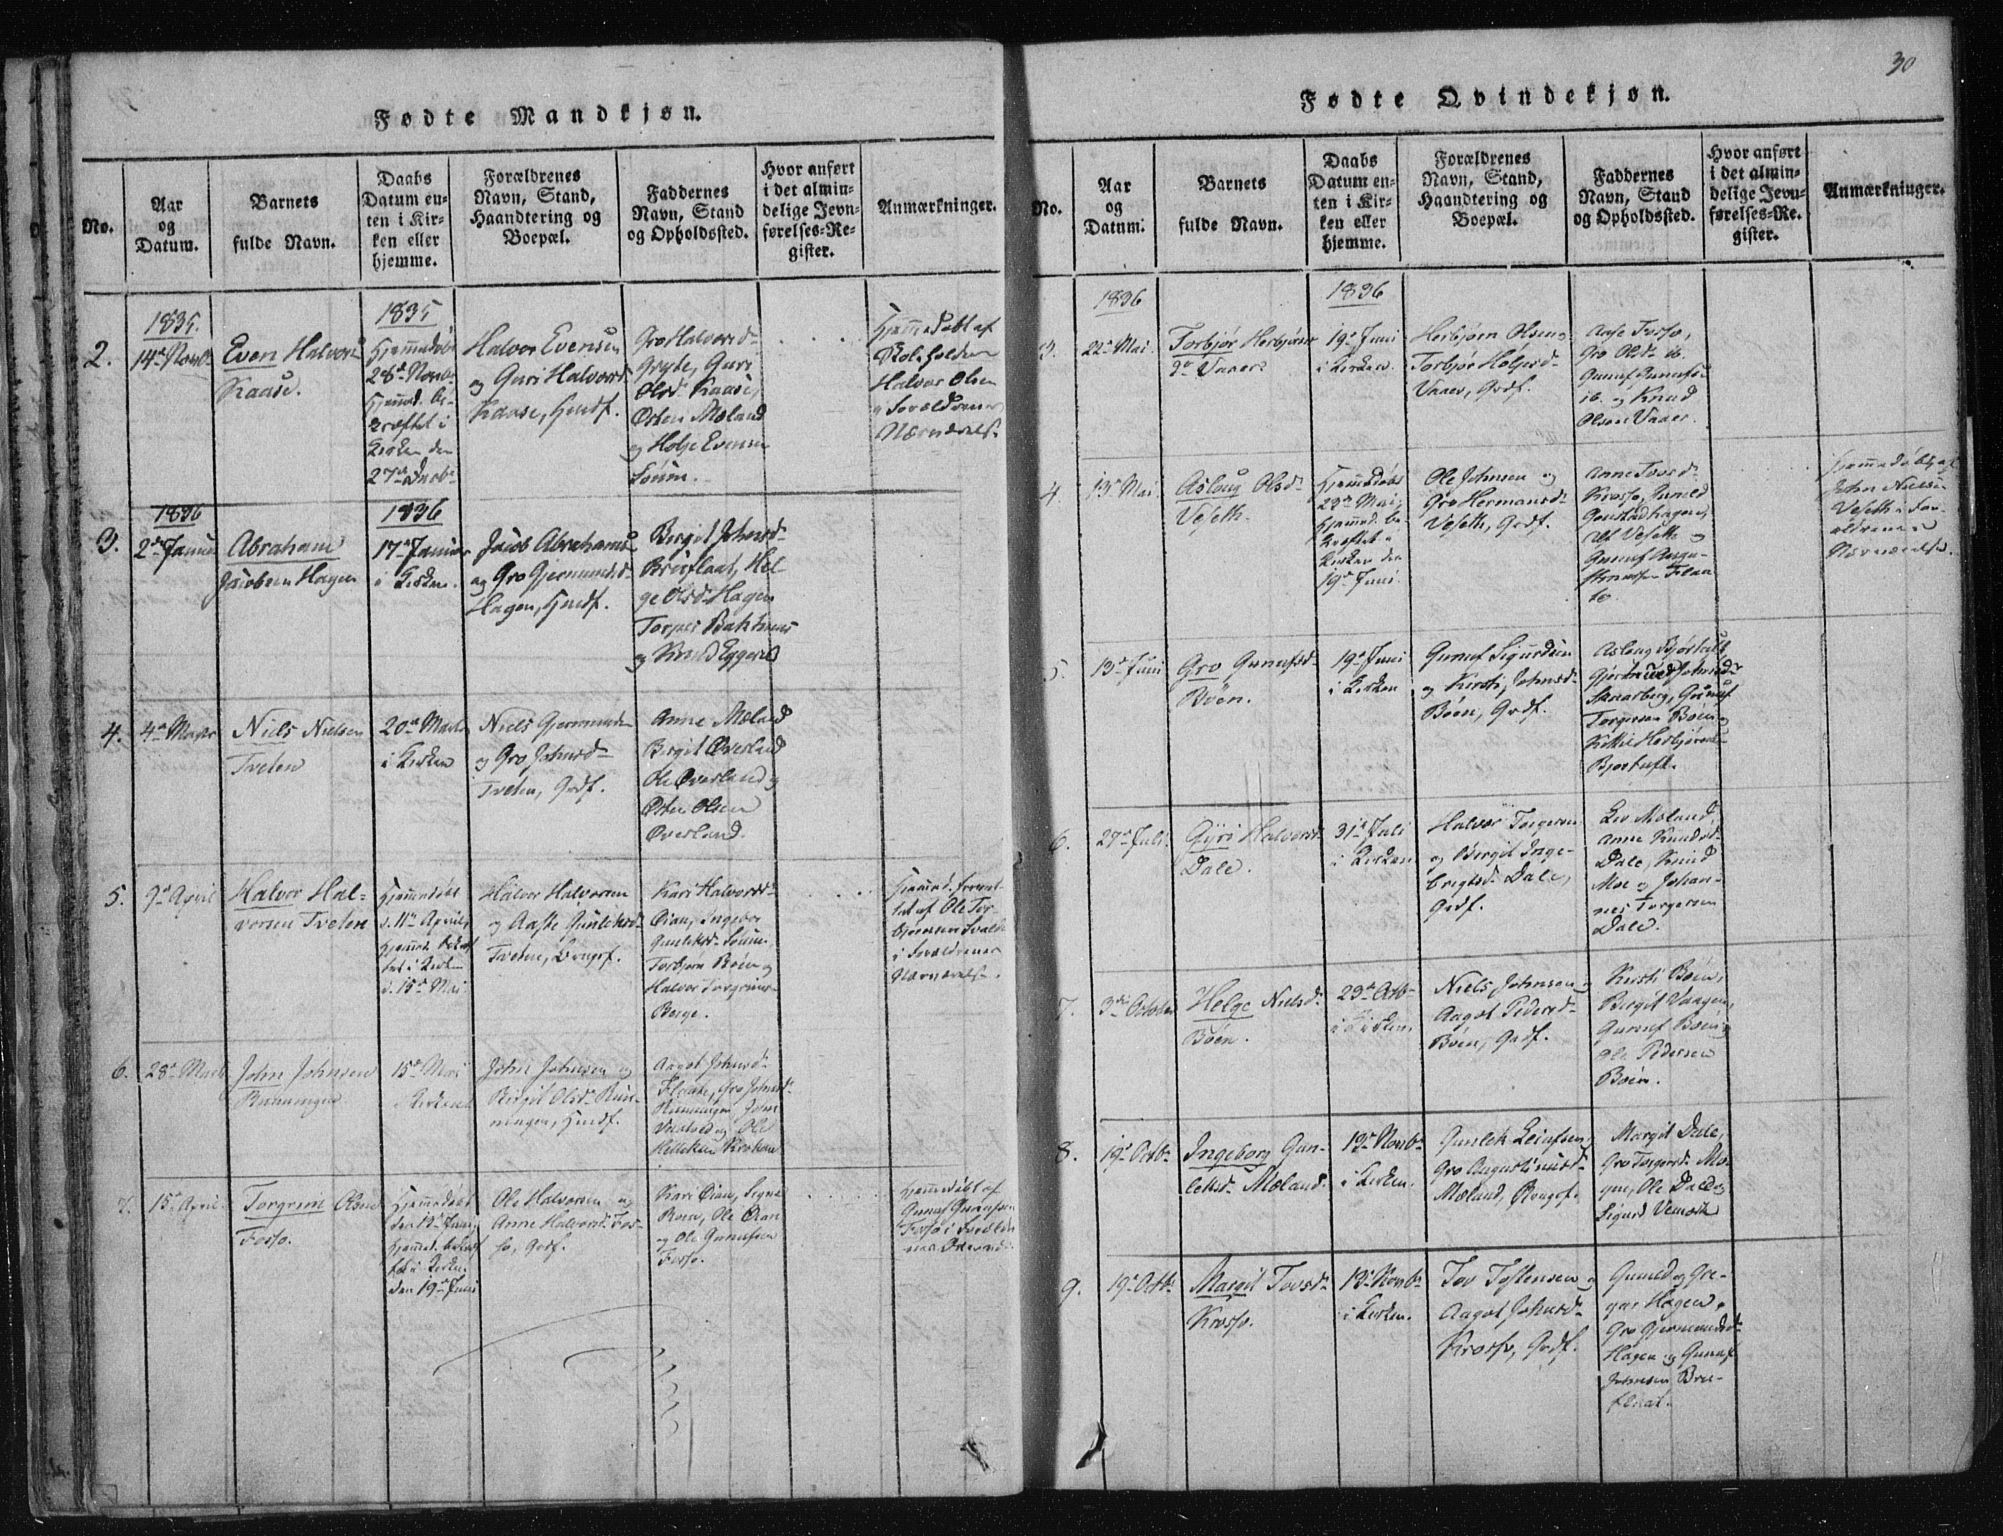 Fødte Mandkjøn.
No.
Aar
og
Datum.
Barnets
fulde Navn.
Daabs
Datum en-
ten i Kir-
ken eller
hjemme.
Forældrenes
Navn, Stand,
Haandtering og
Boepæl.
Faddernes
Navn, Stand
og Opholdssted.
Hvor anført
i det almin-
delige Jevn-
førelses-Re-
gister.
Anmærkninger.
2.
1835.
14de Novbr
Even Halvorsen
Kaase.
1835
Hjemmedøbt
28de Novbr
Hjemmed. be-
kræftet i
Kirken den
27de Decbr
Halvor Evensen
og Guri Halvorsd.
Kaase, Huusf.
Gro Halvorsd.
Gryte, Guri
Olsd. Kaase,
Østen Mæland
og Holje Evensen
Hjemmedøbt af
Halvor Olsen
og Forældrenes
Nærværelse
3.
1836
2den Januar
Abraham
Jacobsen Hagen
1836
17de Januar
i Kirken.
Jacob Abrahams.
og Gro Gjermundsd.
Hagen, Huusf.
Birgit Johnsd.
Brosflaat, Hel-
ge Olsd. Hagen
Torger Bakhuus
og Knud Eggerud
4.
4de Marts
Niels Nielsen
Tveten
20de Marts
i Kirken
Niels Gjermunds.
og Gro Johnsd.
Tveten, Grdf.
Anne Mæland
Birgit Øverland
Ole Øverland og
Østen Olsen
Øverland.
5.
9de April
Halvor Hal-
vorsen Tveten
Hjemmedøbt
d. 11te April,
Hjemmed. bekræf-
tet i Kirken
d. 15de Mai.
Halvor Halvorsen
og Aaste Gunleiksd.
Tveten, Brugsf.
Kari Halvorsd.
Øian, Ingebor
Gunleiksd.
Torbjørn Bøen og
Halvor Torgrims.
Berge.
Hjemmed. forret-
tet af Ole Tor-
bjørnsen
i Forældrenes
Nærværelse.
6.
28de Marts
John Johnsen
Runningen
15de Mai
i Kirken
John Johnsen og
Birgit Olsd. Run-
ningen, Huusf.
Aagot Johnsd.
Flaate, Gro Johnsd.
Runningen, John
og Ole
7.
15de April.
Torgrim Olsen
Forsø.
Hjemmedøbt
den 12te Juni,
Hjemmed. bekræf-
tet i Kirken
den 19de Juni
Ole Halvorsen og
Anne Halvorsd. For-
sø, Grdf.
Kari Øian, Signe
Øian
og Ole Gunufsen
Forsø.
Hjemmedøbt af
Gunuf Gunufsen
Forsø i Forældre-
30
Fødte Qvindekjøn.
No.
Aar
og
Datum.
Barnets
fulde Navn.
Daabs
Datum en-
ten i Kir-
ken eller
hjemme.
Forældrenes
Navn, Stand,
Haandtering og
Boepæl.
Faddernes
Navn, Stand
og Opholdssted.
Hvor anført
i det almin-
delige Jevn-
førelses-Re-
gister.
Anmærkninger.
3.
1836
22de Mai.
Torbjør Herbjørns-
dr Vaaer.
1836
19de Juni
i Kirken.
Herbjørn Olsen og
Torbjør Holjesd.
Vaaer, Grdf.
Aase Forsø,
Gro Olsd. ib.
Gunuf Gunufs.
ib. og Knud
Olsen Vaaer.
4.
13de Mai.
Aslaug Olsd.
Veseth.
Hjemmedøbt
23de Mai,
Hjemmed. be-
kræftet i
Kirken den
19de Juni.
Ole Johnsen og
Gro Hermansd.
Veseth, Grdf.
Anne Tovsd.
Krosso, Gunild
Veseth og
Gunuf Augu-
Hjemmedøbt af
John Nielsen
Veseth i For-
ældrenes
Nærværelse.
5.
13de Juni
Gro Gunufsd.
Bøen.
19de Juni
i Kirken
Gunuf Sigurdsen
og Kirsti Johnsd.
Bøen, Grdf.
Aslaug Bjørtuft
Gjertrud Johnsd.
Skaarberg, Gunuf
Torgersen Bøen og
Kittil Herbjørnsen
Bjørtuft.
6.
27de Juli.
Gyri Halvorsd.
Dale.
31te Juli
i Kirken
Halvor Torgersen
og Birgit Inge-
brigtsd. Dale,
Grdf.
Liv Mæland,
Anne Knudsd.
Dale, Knud
Moe og Johan-
nes Torgersen
Dale.
7.
3die October
Helge Nielsd.
Bøen.
23de Octbr
i Kirken.
Niels Johnsen og
Aagot Pedersd.
Bøen, Grdf.
Kirsti Bøen,
Birgit Vaagen,
Gunuf Bøen og
Ole Pedersen
Bøen.
8.
19de Octbr
Ingeborg Gun-
leiksd. Mæland.
13de Novbr
i Kirken.
Gunlek Leiufsen,
Gro Augustinusd.
Mæland, Brugsf.
Margit Dale,
Gro Torgersd. Mo-
gen, Ole Dale og
Sigurd Vemork
9.
19de Octbr
Margit Tovsd.
Krosso.
13de Novbr
i Kirken.
Tov Tostensen og
Aagot Johnsd.
Krosso, Grdf.
Gunild og Gre-
gar Hagen,
Gro Gjermundsd.
Hagen og Gunuf
Johnsen Bro-
flaat.